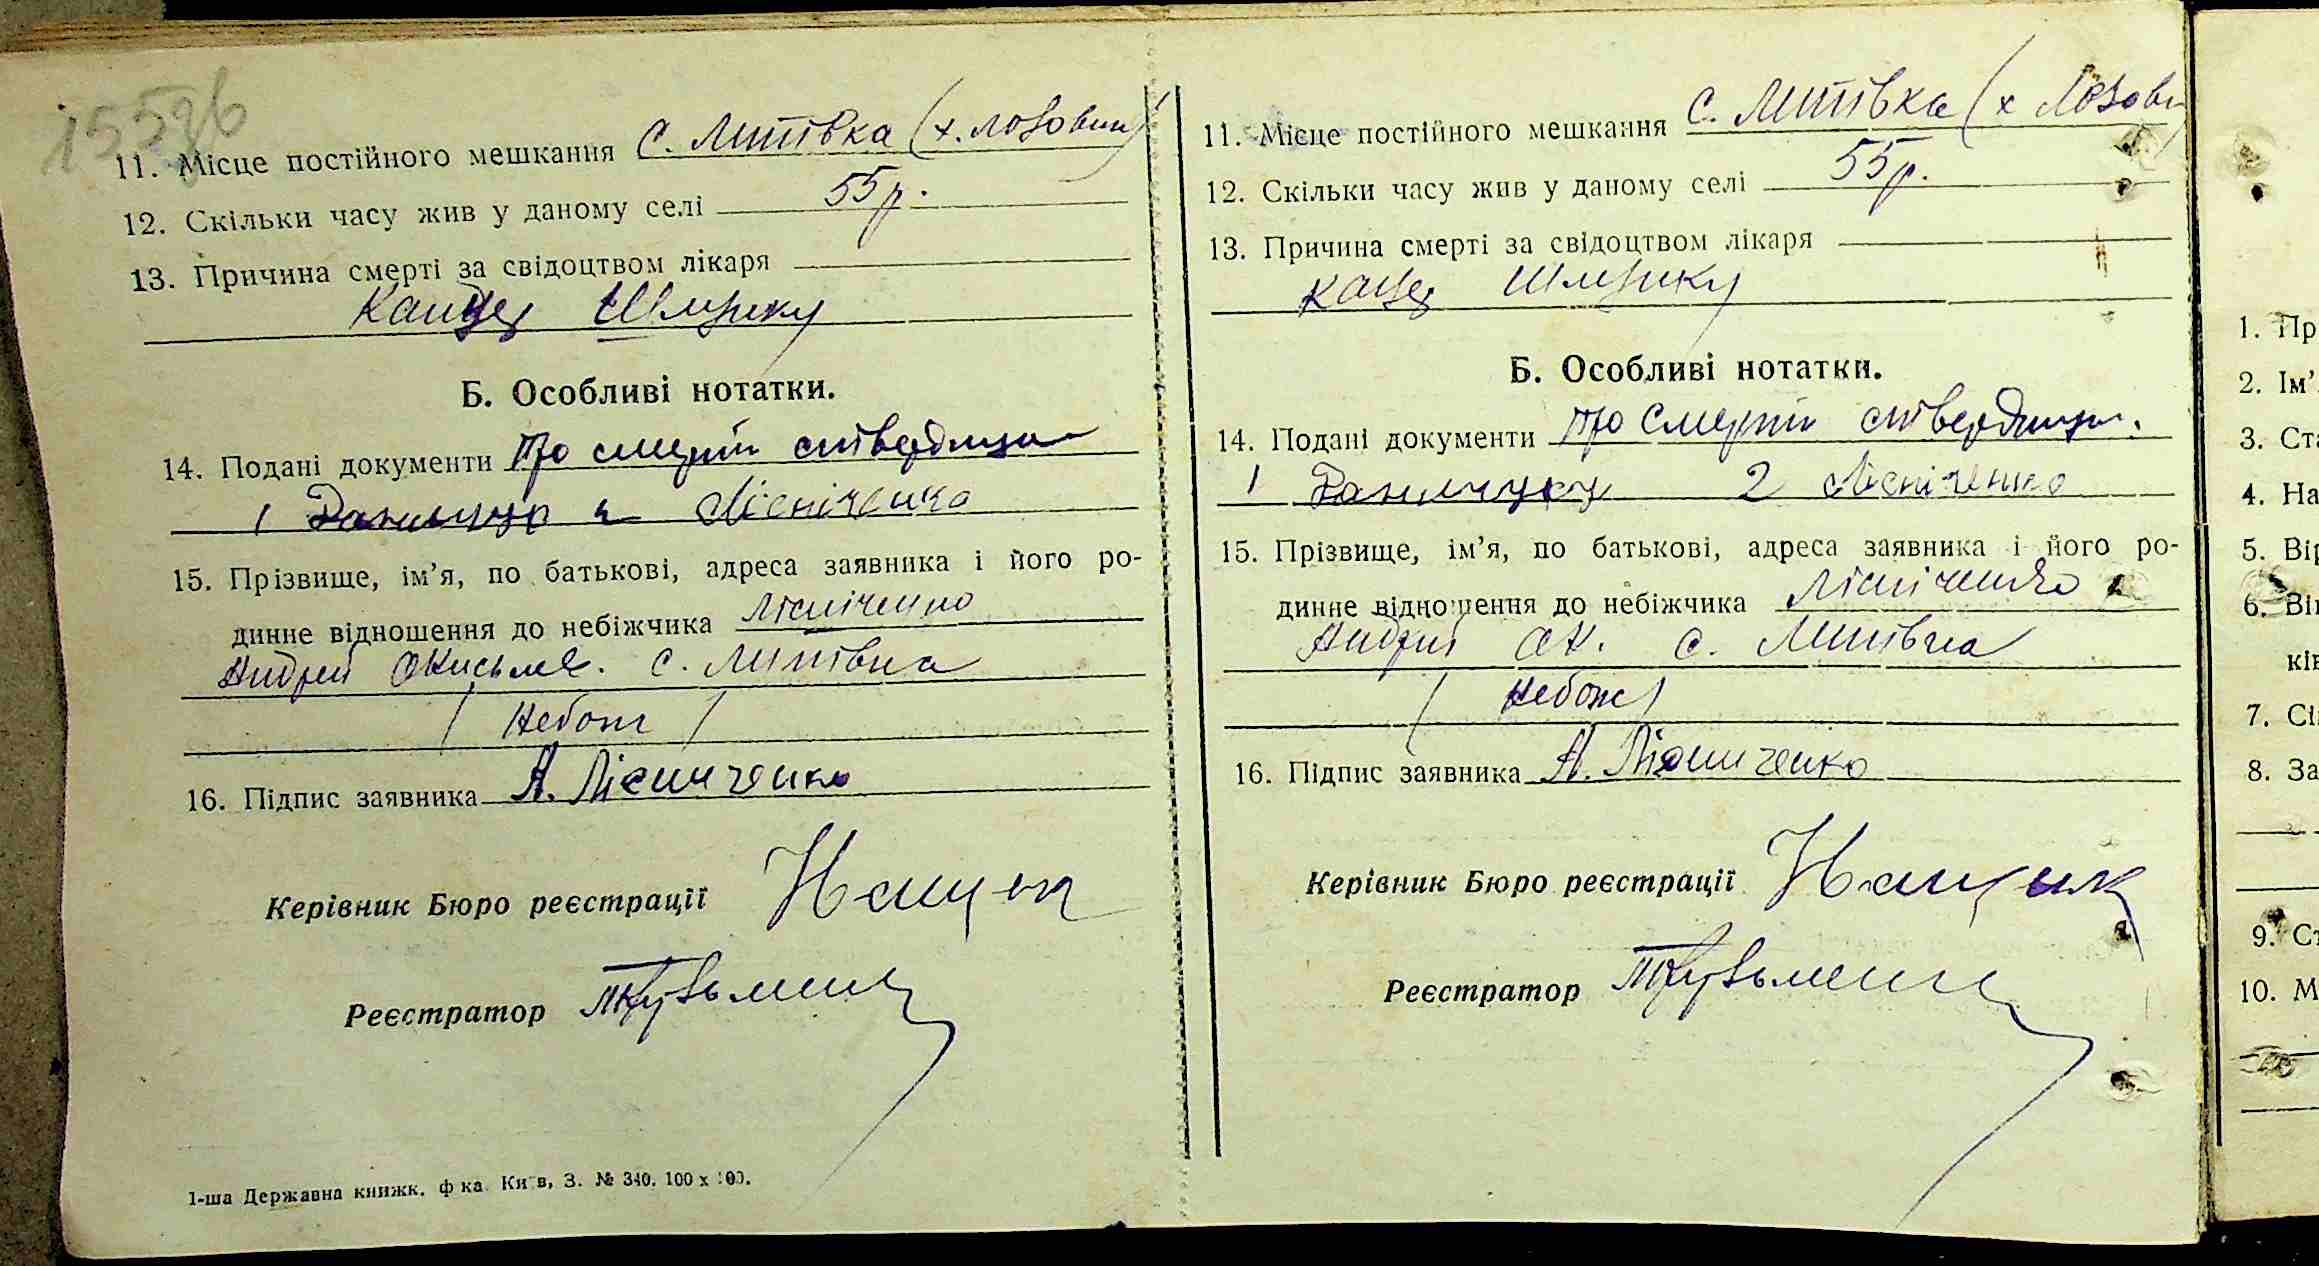 155зв
11. Місце постійного мешкання с. Липівка (х. Лозовик)
12. Скільки часу жив у даному селі 55 р.
13. Причина смерті за свідоцтвом лікаря
Канцер Шлунку
Б. Особливі нотатки.
14. Подані документи про смерть ствердили
1 2 Лісніченко
15. Прізвище, ім'я, по батькові, адреса заявника і його ро-
динне відношення до небіжчика Лісніченко
Андрей с. Липівка
(Небож)
16. Підпис заявника А. Лісниченко
Керівник Бюро реєстрації
Реєстратор
1-ша Державна книжк. ф-ка. Київ, З. № 340. 100 х 100.
11. Місце постійного мешкання с. Липівка (х Лозови
12. Скільки часу жив у даному селі 55 р.
13. Причина смерті за свідоцтвом лікаря
Канцер Шлунку
Б. Особливі нотатки.
14. Подані документи про смерть ствердили.
1 2 Лісніченко
15. Прізвище, ім'я, по батькові, адреса заявника і його ро-
динне відношення до небіжчика Лісніченко
Андрей Ок. с. Липівка
(Небож)
16. Підпис заявника А. Лісниченко
Керівник Бюро реєстрації
Реєстратор
1. Пр
2. Ім'
3. Ста
4. На
5. Вір
6. Вік
ків
7. Сі
8. За
9. Ст
10. М